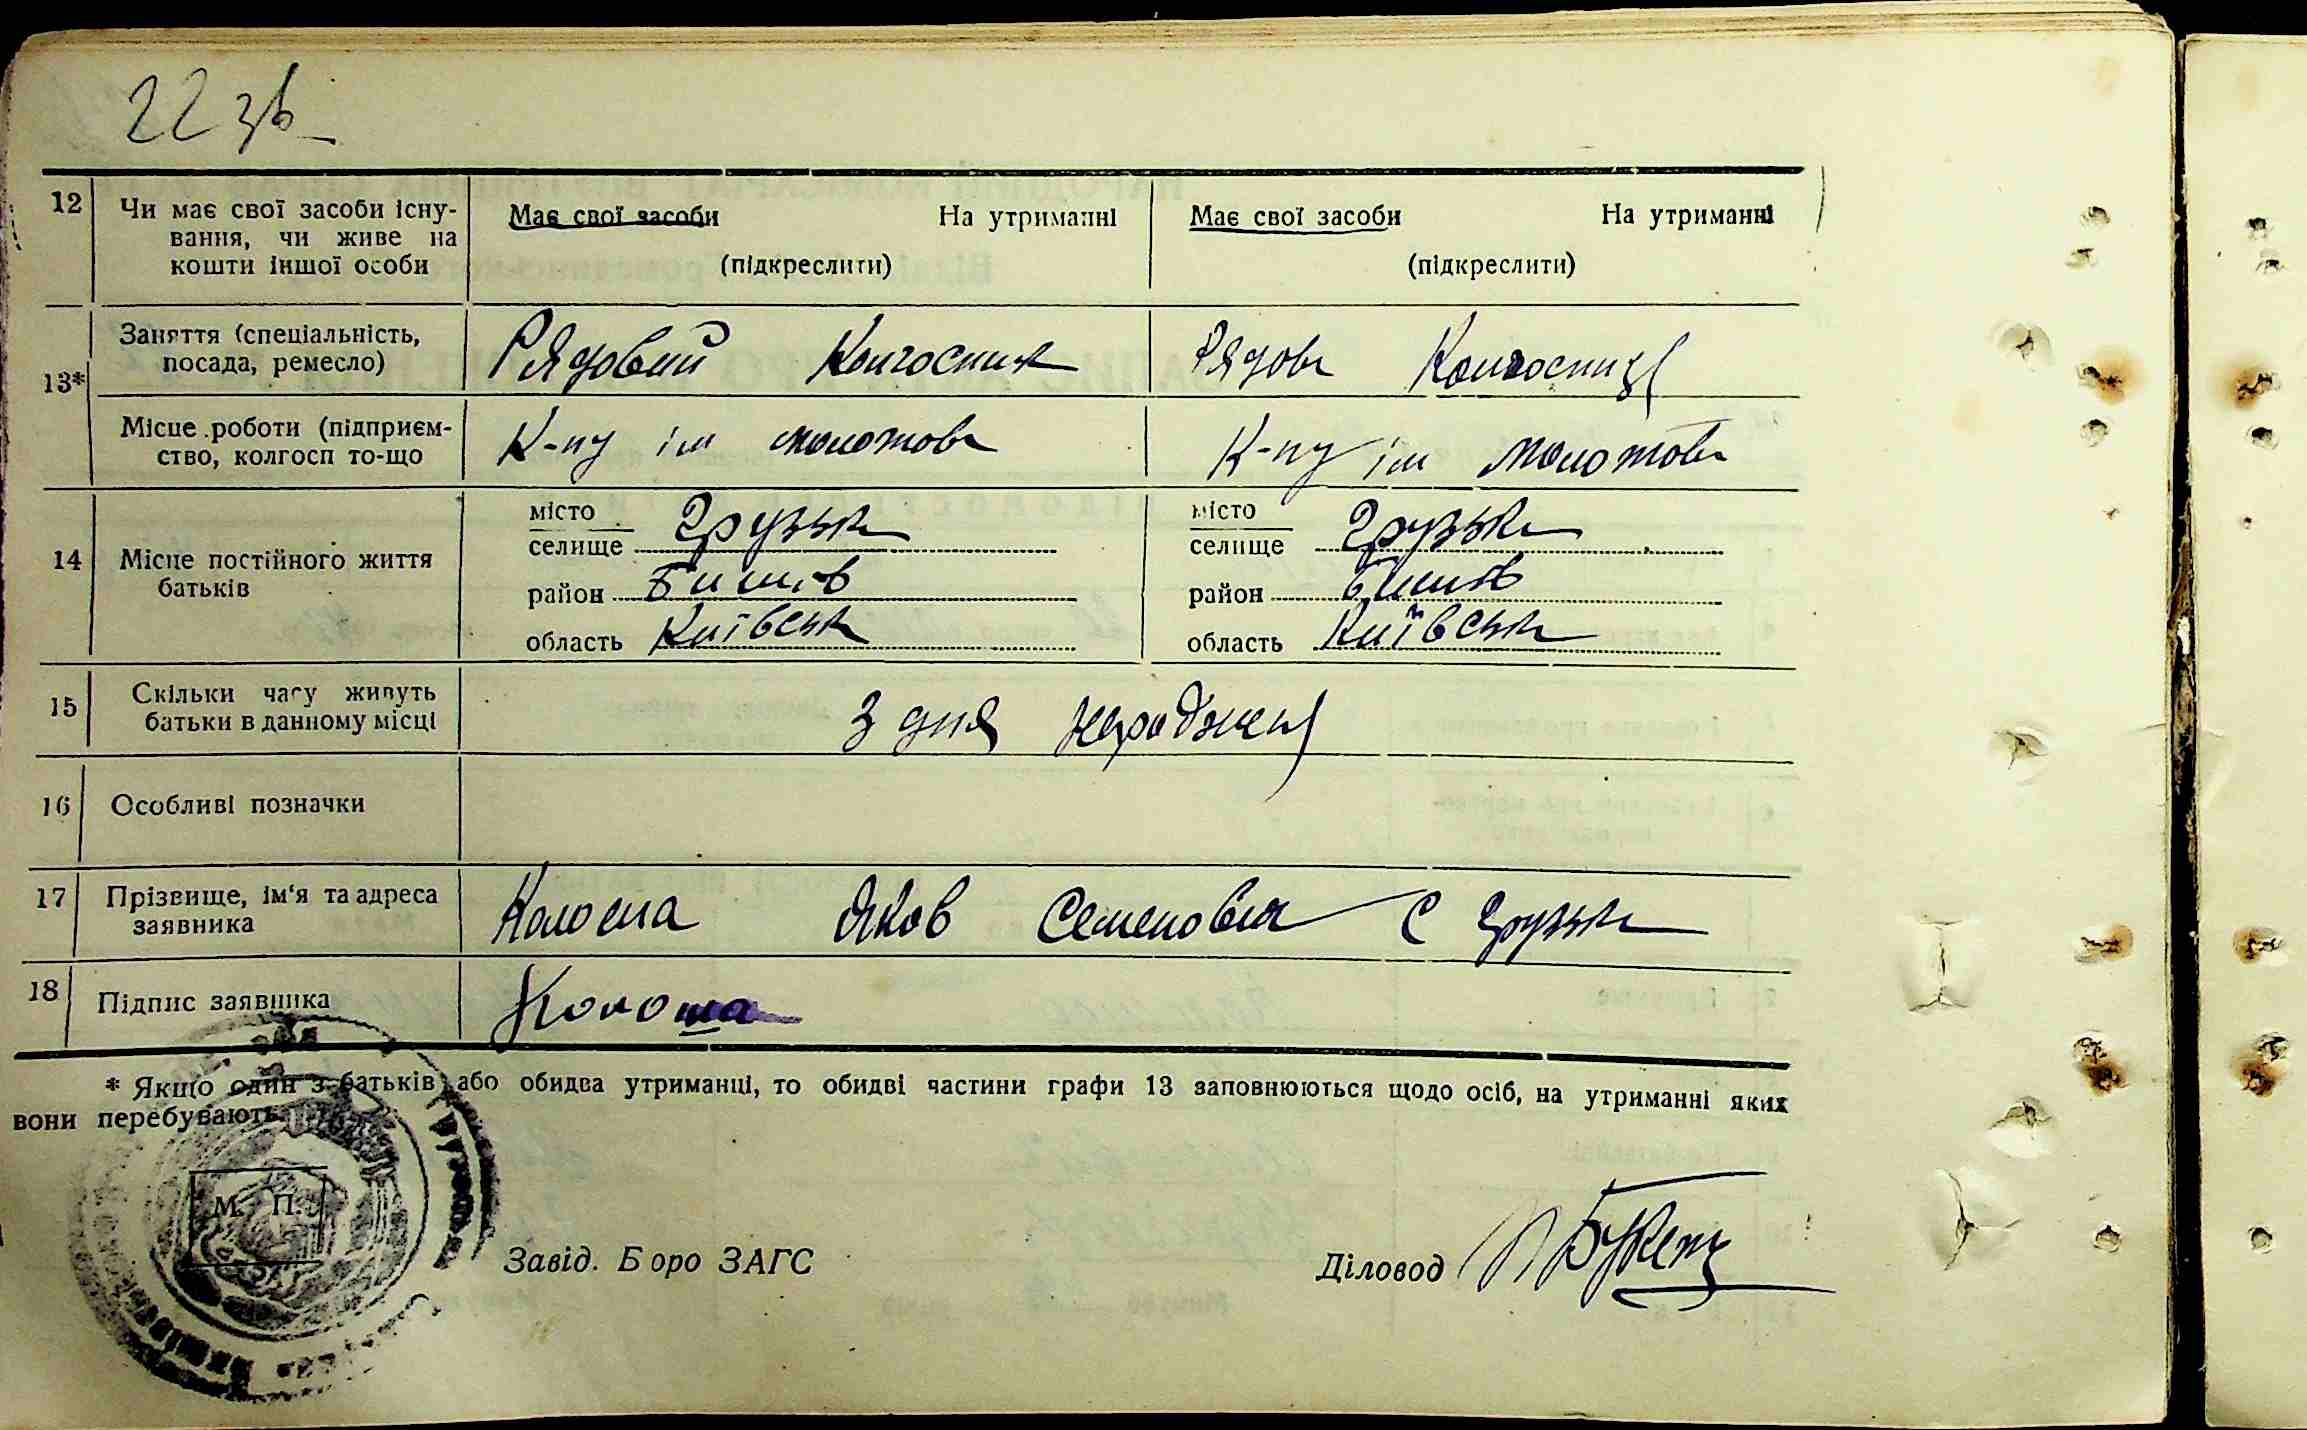 22 зв
12 Чи має свої засоби існу-
вання, чи живе на
кошти іншої особи
Має свої засоби На утриманні
(підкреслити)
Має свої засоби На утриманні
(підкреслити)
13*
Заняття (спеціальність,
посада, ремесло)
Рядовий Колгоспник
Рядова Колгоспниця
Місце роботи (підприєм-
ство, колгосп то-що
К-пу ім молотова
К-пу ім молотова
14 Місце постійного життя
батьків
місто
селище Грузька
район Бишів
область Київська
місто
селище Грузька
район Бишів
область Київська
15 Скільки часу живуть
батьки в данному місці
З дня народження
16 Особливі позначки
17 Прізвище, ім'я та адреса
заявника
Колоша Яков Семенович С Грузька
18 Підпис заявника
Колоша
* Якщо один з батьків або обидва утриманці, то обидві частини графи 13 заповнюються щодо осіб, на утриманні яких
вони перебувають.
М. П.
Завід. Б оро ЗАГС
Діловод